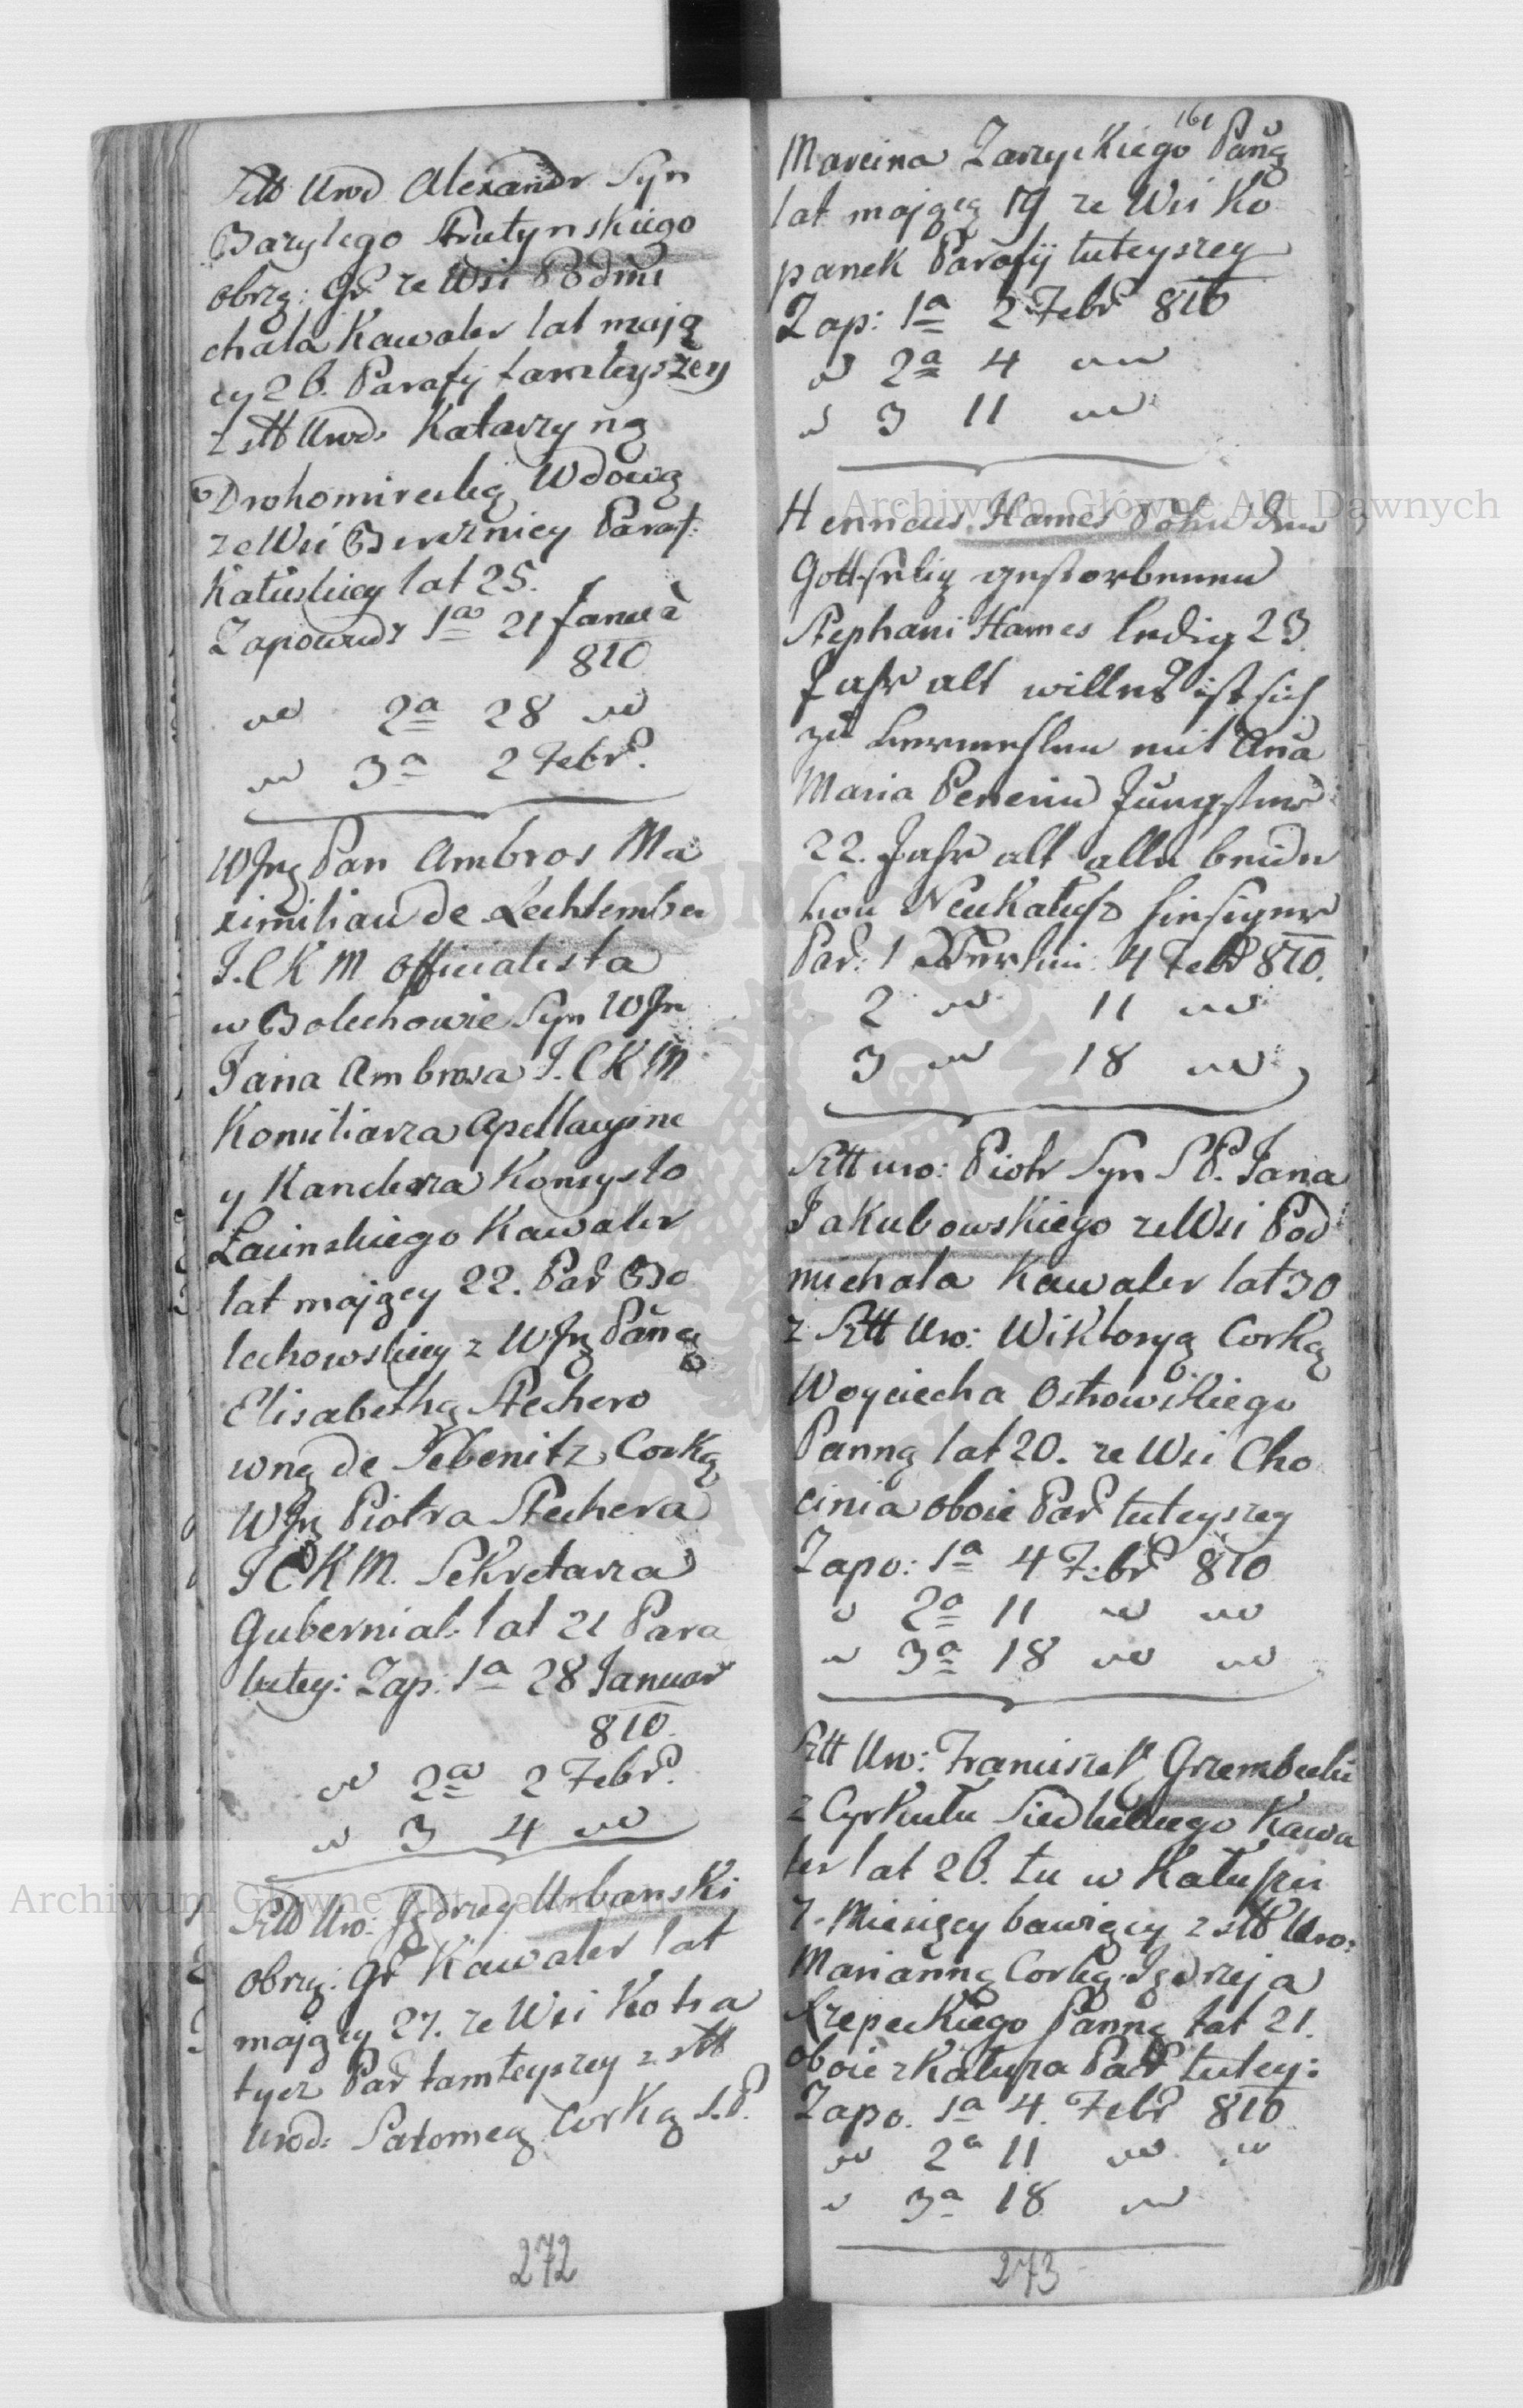 Sltt Urod Alexandr Syn
Bazylego Strutynskiego
obrzą: Gr: ze Wsi Podmi
chala Kawaler lat mają
cy 26. Parafij tamteyszey
z Sltt Urod: Katarzyną
Drohomirecką Wdową
ze Wsi Bereznicy Paraf:
Katuskiey lat 25.
Zapowiedz 1a 21 Janua
810
2a 28
3a 2 Febr.
WJP Pan Ambros Ma
ximilian de Lechtember
J.C K M officialista
w Bolechowie Syn WJP
Jana Ambrosa J.C K M
Konsiliarza Apellacyine
y Kanclerza Konsysto
Lacinskiego Kawaler
lat maiący 22. Par Bo
lechowskiey z WJP Panną
Elisabethą Stechero
wną de Sebenitz Corką
WJP Piotra Stechera
J C K M. Sekretarza
Gubernial: lat 21 Para
tutey: Zap: 1a 28 Januar
810.
2a 2 Febr.
3 4
Sltt Uro: Jędrzey Urbanski
obrzą: Gr Kawaler lat
mający 27. ze Wsi Kotia
tycz Par tamteyszey z Sltt
Urod: Salomeą Corką S.P.
272
161
Marcina Zarzyckiego Pañą
lat mającą 19 ze Wsi Ko
panek Parafij tuteyszey
Zap: 1a 2 Febr 810
2a 4
3 11
Henricus Hames Sohn des
Gottselig gestorbenen
Stephani Hames ledig 23
Jahr alt willens ist sich
zu vermehlen mit Aña
Maria Jungster
22. Jahr alt alle beide
von NeuKalusz hiesiger
Par: 1 Verkün: 4 Febr 810.
2 11
3 18
Sltt uro: Piotr Syn S P. Jana
Jakubowskiego ze Wsi Pod
michala Kawaler lat 30
z Sltt Uro: Wiktoryą Corką
Woyciecha Ostrowskiego
Panną lat 20. ze Wsi Cho
cinia oboie Par tuteyszey
Zapo: 1a 4 Febr 810
2a 11
3a 18
Sltt Uro: Franciszek Grzembecki
z Cyrkułu Siedleckiego Kawa
ler lat 26. tu w Katuszu
7. Miesięcy bawiący z Sltt Uro:
Marianną Corką Jędrzeja
Krzepeckiego Panną lat 21.
oboie z Katusza Par tutey:
Zapo. 1a 4. Febr 810
2a 11
3a 18
273
Archiwum Główne Akt Dawnych
Archiwum Główne Akt Dawnych